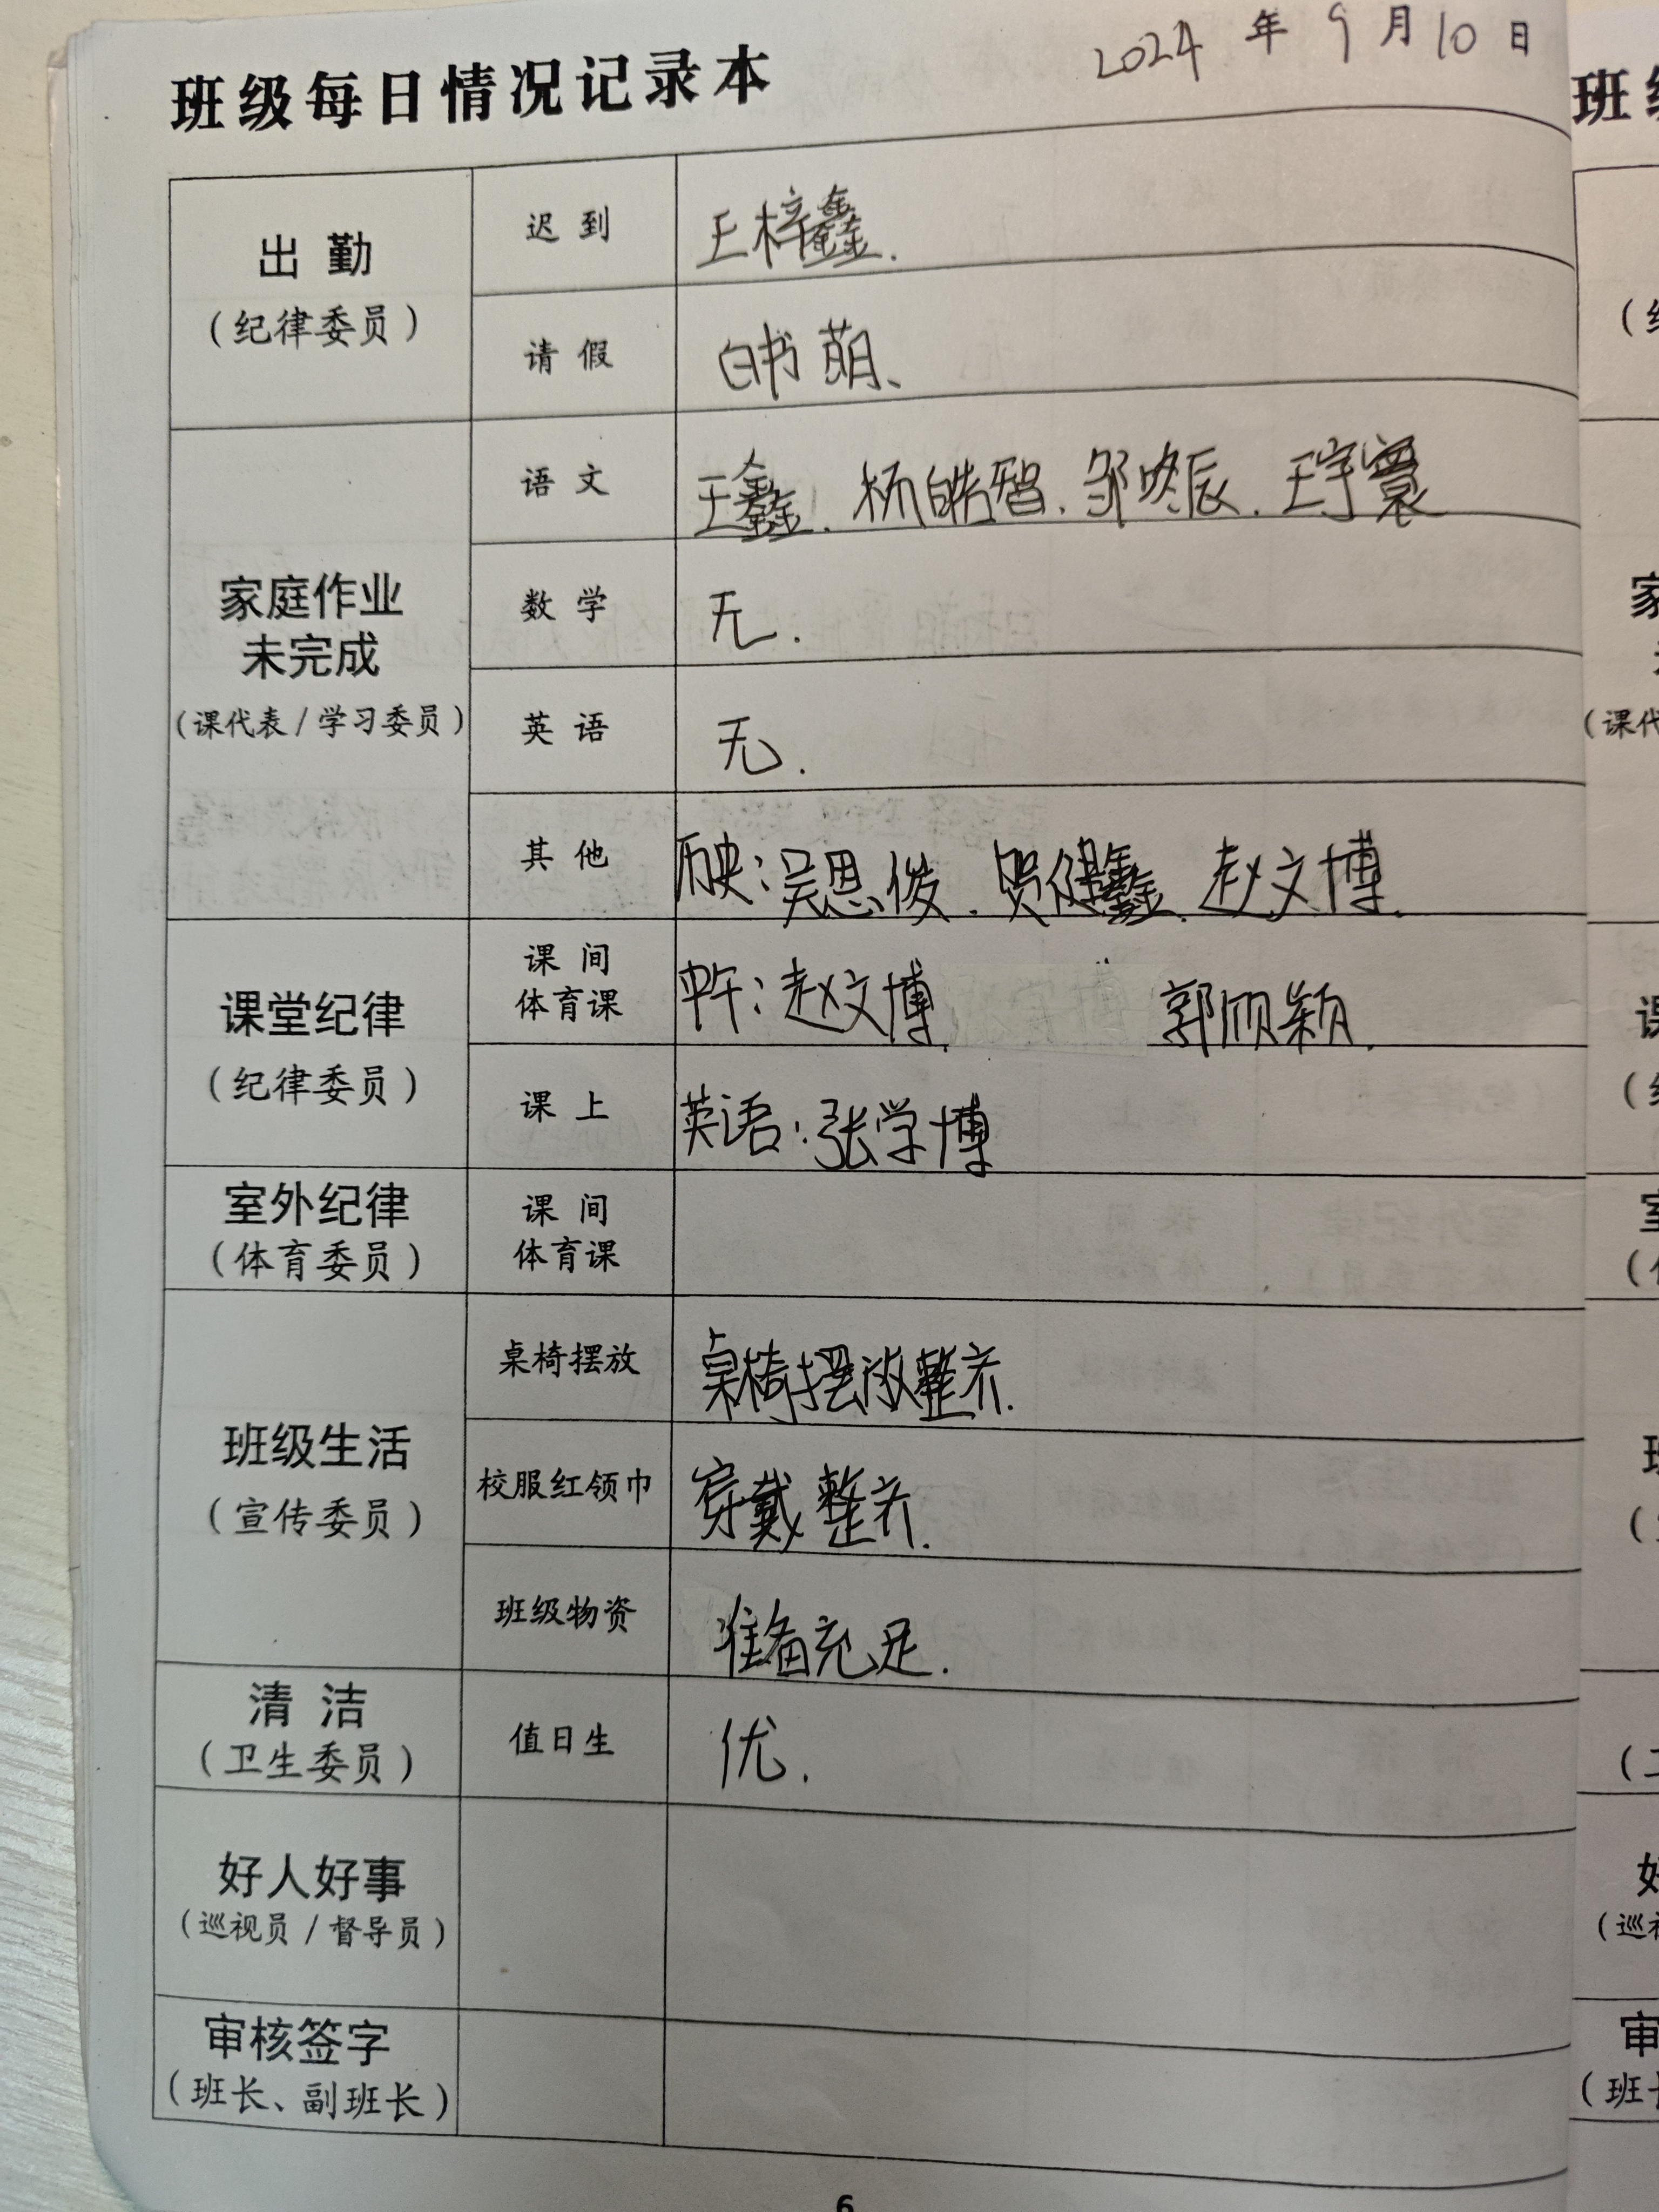 班级每日情况记录本
2024年9月10日
出勤
(纪律委员)
迟到
王梓鑫.
请假
白书萌、
家庭作业
未完成
(课代表/学习委员)
语文
王鑫. 杨皓智. 邹烙辰. 王宇寰
数学
无.
英语
无.
其他
历史:吴思俊. 贺健鑫. 赵文博.
课堂纪律
(纪律委员)
课间
体育课
中午:赵文博. 郭颖.
课上
英语:张学博
室外纪律
(体育委员)
课间
体育课
班级生活
(宣传委员)
桌椅摆放
桌椅摆放整齐.
校服红领巾
穿戴整齐.
班级物资
准备充足.
清洁
(卫生委员)
值日生
优.
好人好事
(巡视员/督导员)
审核签字
(班长、副班长)
6